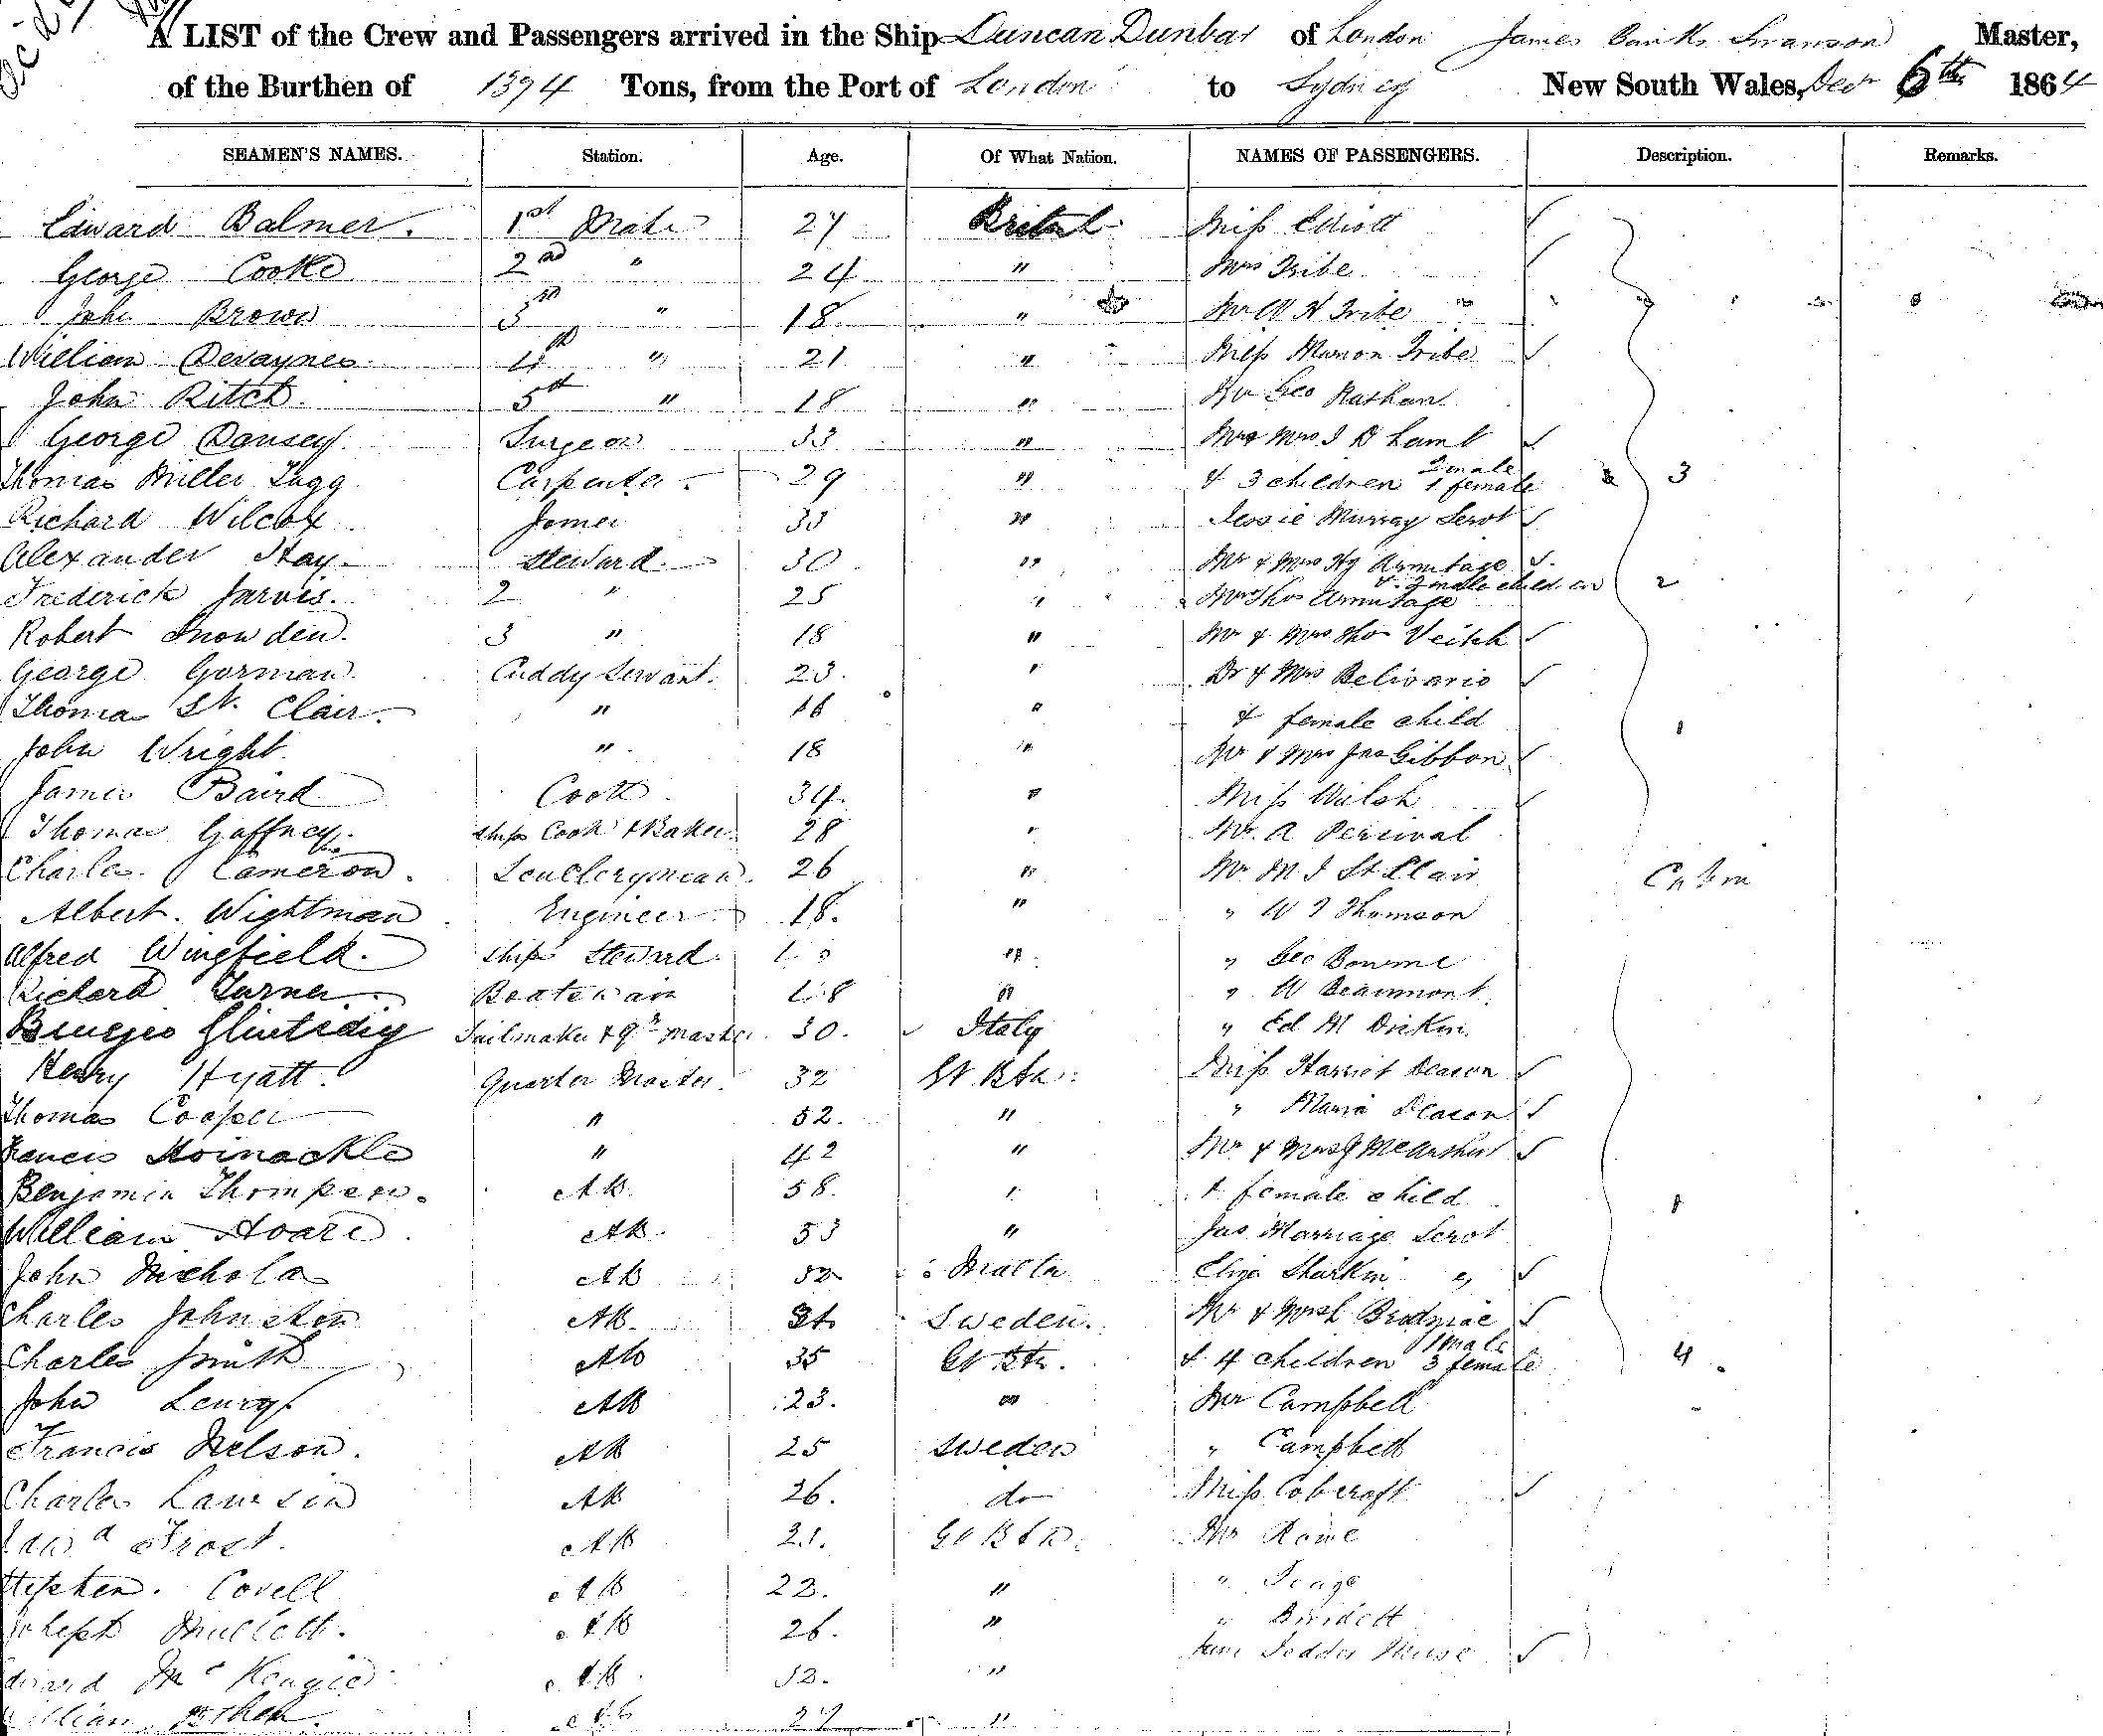 A LIST of the Crew and Passengers arrived in the Ship Duncan Dunbar of London James Banks Swanson Master,
of the Burthen of 1394 Tons, from the Port of London to Sydney New South Wales, Decr 6th 1864
SEAMEN'S NAMES. Station. Age. Of What Nation. NAMES OF PASSENGERS. Description. Remarks.
Edward Balmer. 1st Mate 27 British Miss Elliott
George Cooke 2nd " 24 " Mrs Tribe
John Brown 3rd " 18 " Mr W H Tribe
William Devaynes 4th " 21 " Miss Marion Tribe
John Ritch. 5th " 18 " Mr Geo Nathan
George Dansey Surgeon 33 " Mr & Mrs J B Lamb
Thomas Miller Tagg Carpenter 29 " & 3 children 2 male 1 female 3
Richard Wilcox Joiner 33 " Jessie Murray Servt
Alexander Hay Steward 30 " Mr & Mrs Hy Armitage
Frederick Jarvis. 2 " 25 " & 2 male children 2
Mrs Thos Armitage
Robert Snowden. 3 " 18 " Mr & Mrs Thos Veitch
George Gorman Cuddy Servant. 23. " Dr & Mrs Belisario
Thomas St. Clair. " 16 " & female child 1
John Wright " 18 " Mr & Mrs Jas Gibbon
James Baird Cook 34 " Miss Walsh
Thomas Gaffney. Ships Cook & Baker 28 " Mr. A Percival
Charles Cameron. Sculleryman. 26 " Mr M J St Clair Cabin
Albert Wightman Engineer 18. " " W J Thomson
Alfred Wingfield. Ships Steward " " Geo Bourne
Richard Turner Boatswain " " W Beaumont
Sailmaker & Qr Master 30. Italy " Ed M
Henry Hyatt. Quarter Master. 32 Gt Btn. Miss Harriet Deacon
Thomas Cooper " 52. " " Maria Deacon
Francis " 42 " Mr & Mrs McArthur
Benjamin Thompson. AB 58. " & female child 1
William Hoare AB. 53 " Jas Marriage Servt
John Nichola AB 52 Malta Eliza
Charles Johnston AB. Sweden. Mr & Mrs
Charles Smith AB 35 Gt Btn. & 4 children 1 male 3 female 4
John AB 23. " Mr Campbell
Francis Nelson. AB 25 Sweden " Campbell
Charles AB 26. do Miss Cobcroft
Edwd Frost. AB 21. Gt Btn. Mr Rowe
Stephen. Covell AB 22. " "
Joseph AB 26. " " Burdett
Edward McKenzie AB 32. " Jane Nurse
William AB 27 "